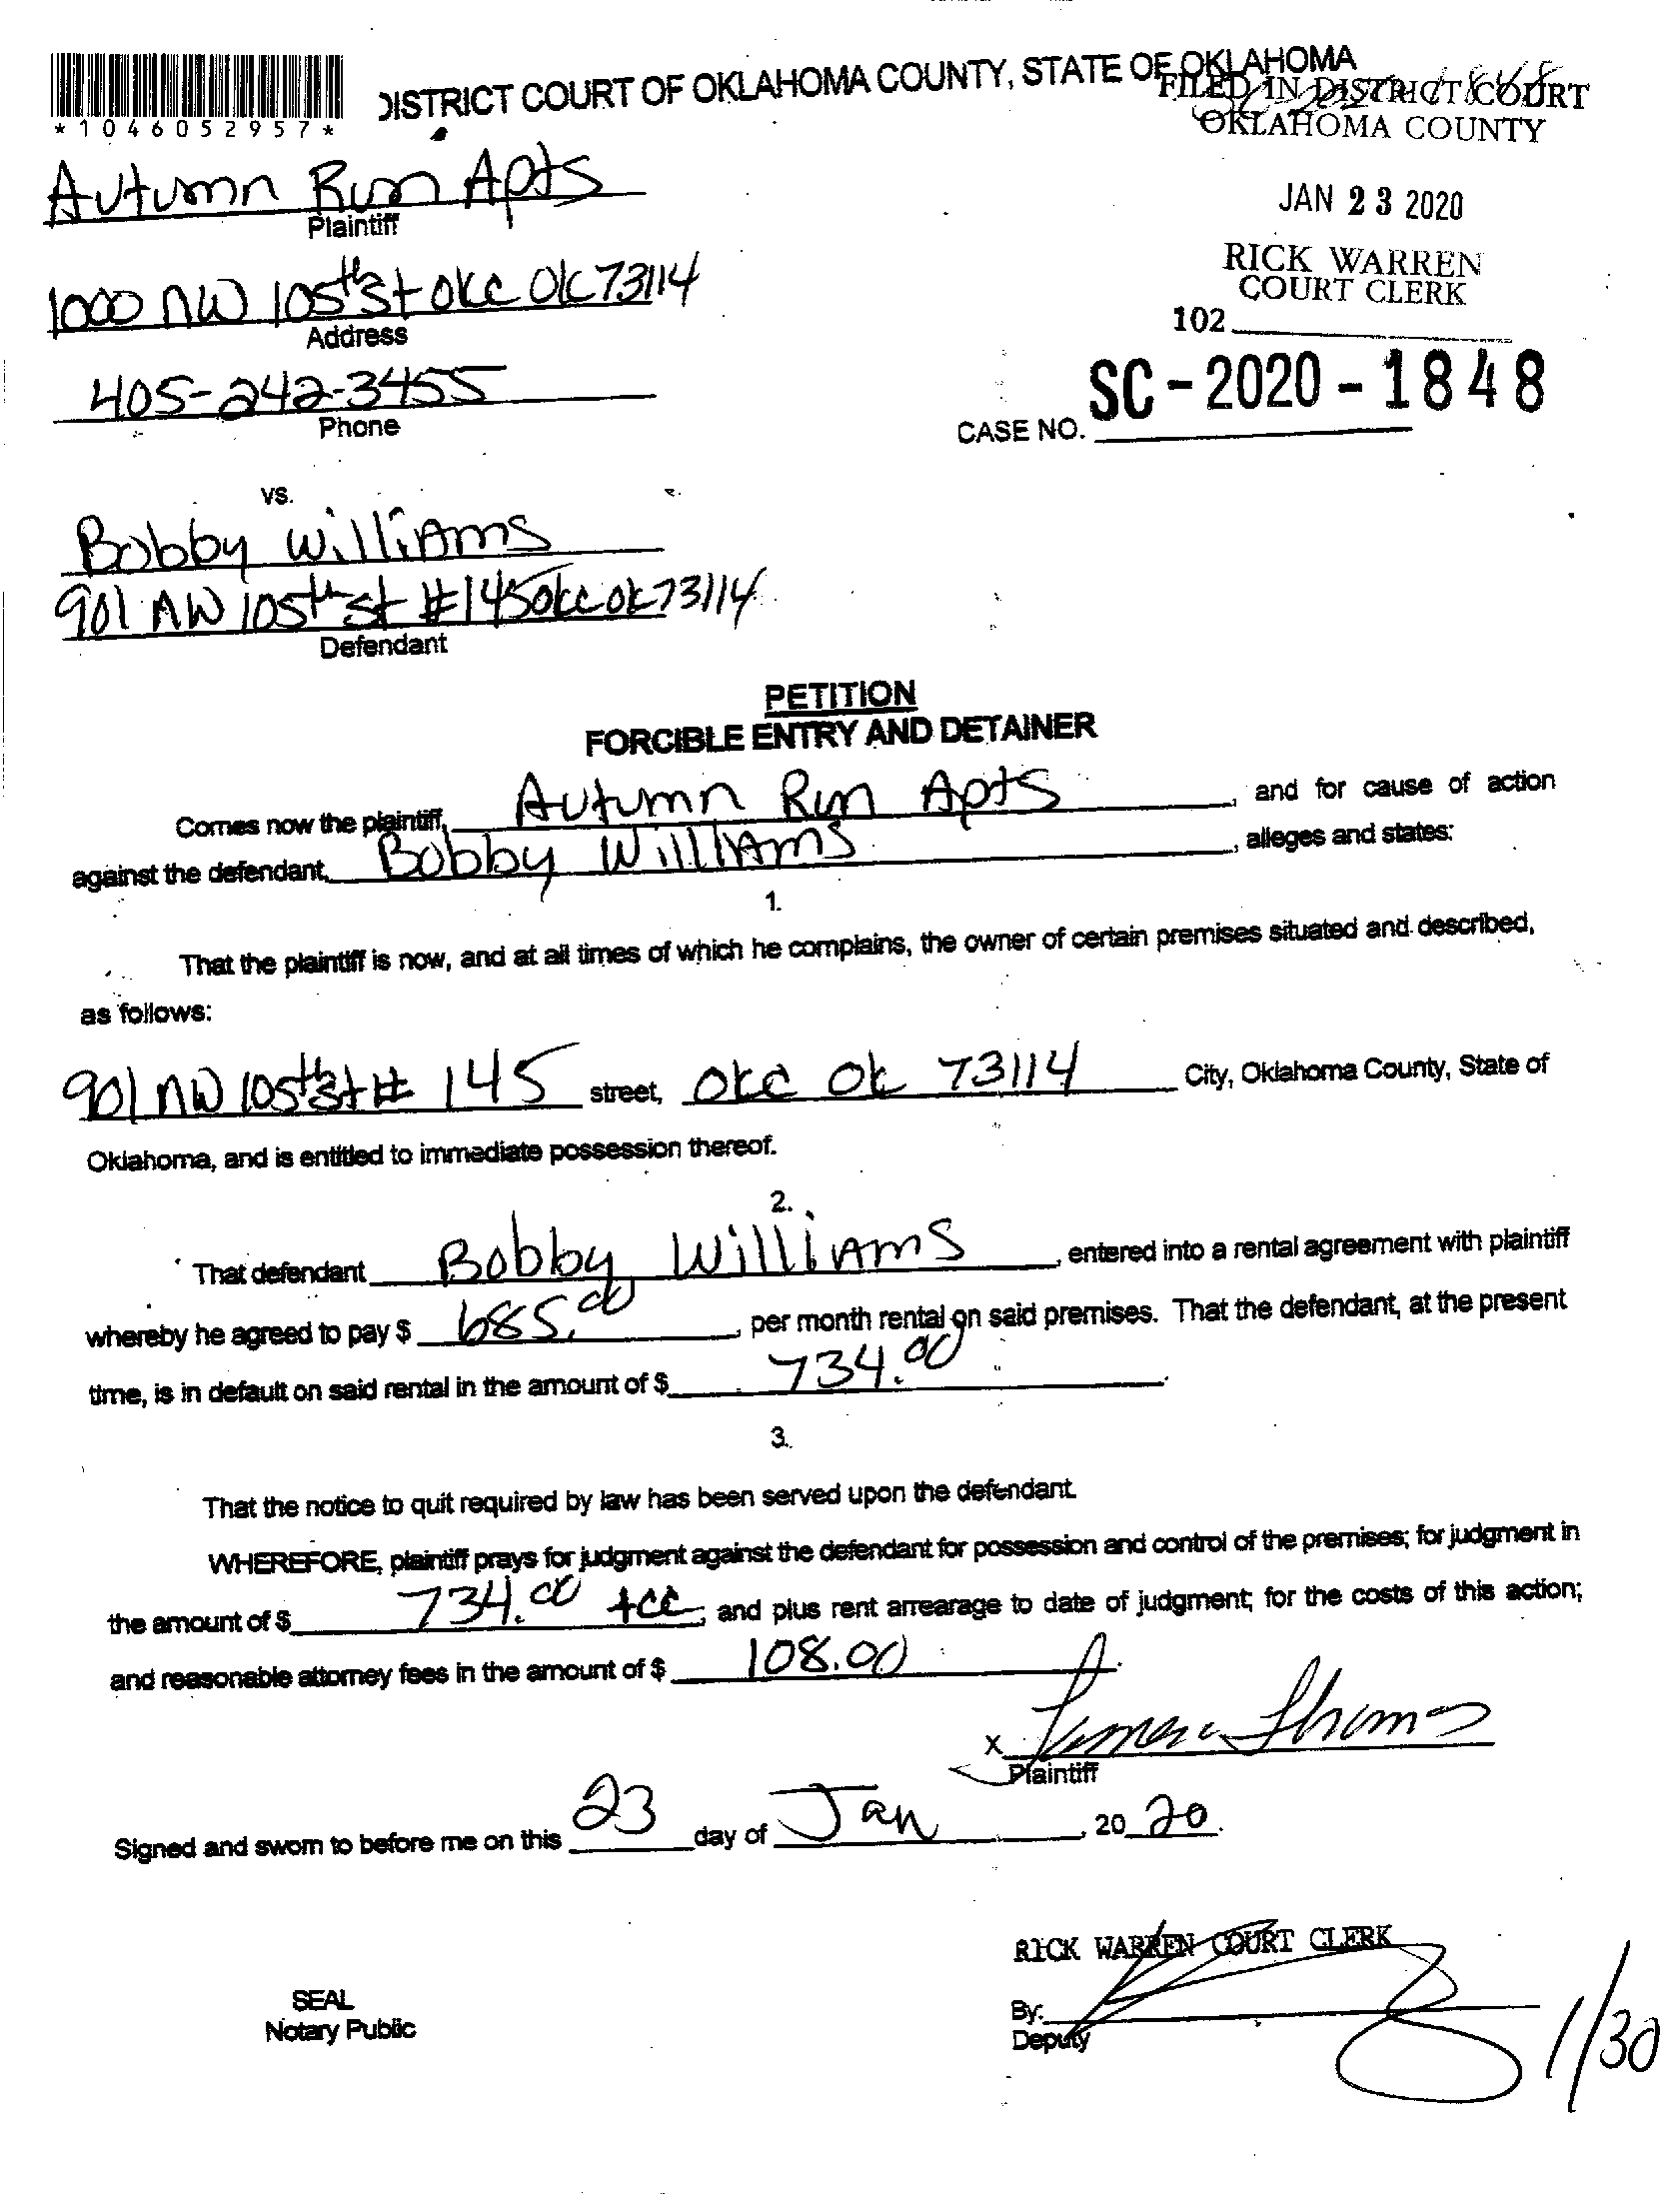 DISTRICT COURT OF OKLAHOMA COUNTY, STATE OF OKLAHOMA
*1046052957*
FILED IN DISTRICT COURT
OKLAHOMA COUNTY
Autumn Run Apts
Plaintiff
JAN 23 2020
RICK WARREN
COURT CLERK
1000 NW 105th St OKC OK 73114
Address
102
405-242-3455
Phone
SC-2020-1848
CASE NO.
vs.
Bobby Williams
901 NW 105th St #145 OKC OK 73114
Defendant
PETITION
FORCIBLE ENTRY AND DETAINER
Comes now the plaintiff, Autumn Run Apts, and for cause of action
against the defendant, Bobby Williams, alleges and states:
1.
That the plaintiff is now, and at all times of which he complains, the owner of certain premises situated and described,
as follows:
901 NW 105th St # 145 street, OKC OK 73114 City, Oklahoma County, State of
Oklahoma, and is entitled to immediate possession thereof.
2.
That defendant Bobby Williams, entered into a rental agreement with plaintiff
whereby he agreed to pay $ 685.00, per month rental on said premises. That the defendant, at the present
time, is in default on said rental in the amount of $ 734.00.
3.
That the notice to quit required by law has been served upon the defendant.
WHEREFORE, plaintiff prays for judgment against the defendant for possession and control of the premises; for judgment in
the amount of $ 734.00 +CC; and plus rent arrearage to date of judgment; for the costs of this action;
and reasonable attorney fees in the amount of $ 108.00
x Thomas
Plaintiff
Signed and sworn to before me on this 23 day of Jan, 2020.
RICK WARREN COURT CLERK
SEAL
Notary Public
By:
Deputy
1/30